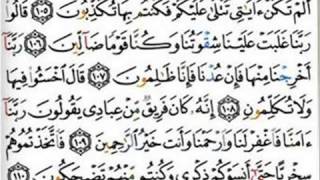 أَلَمْ تَكُنْ ءَايَٰتِى تُتْلَىٰ عَلَيْكُمْ فَكُنتُم بِهَا تُكَذِّبُونَ ١٠٥ قَالُوا۟
رَبَّنَا غَلَبَتْ عَلَيْنَا شِقْوَتُنَا وَكُنَّا قَوْمًا ضَآلِّينَ ١٠٦ رَبَّنَآ
أَخْرِجْنَا مِنْهَا فَإِنْ عُدْنَا فَإِنَّا ظَٰلِمُونَ ١٠٧ قَالَ ٱخْسَـُٔوا۟ فِيهَا
وَلَا تُكَلِّمُونِ ١٠٨ إِنَّهُۥ كَانَ فَرِيقٌ مِّنْ عِبَادِى يَقُولُونَ رَبَّنَآ
ءَامَنَّا فَٱغْفِرْ لَنَا وَٱرْحَمْنَا وَأَنتَ خَيْرُ ٱلرَّٰحِمِينَ ١٠٩ فَٱتَّخَذْتُمُوهُمْ
سِخْرِيًّا حَتَّىٰٓ أَنسَوْكُمْ ذِكْرِى وَكُنتُم مِّنْهُمْ تَضْحَكُونَ ١١٠